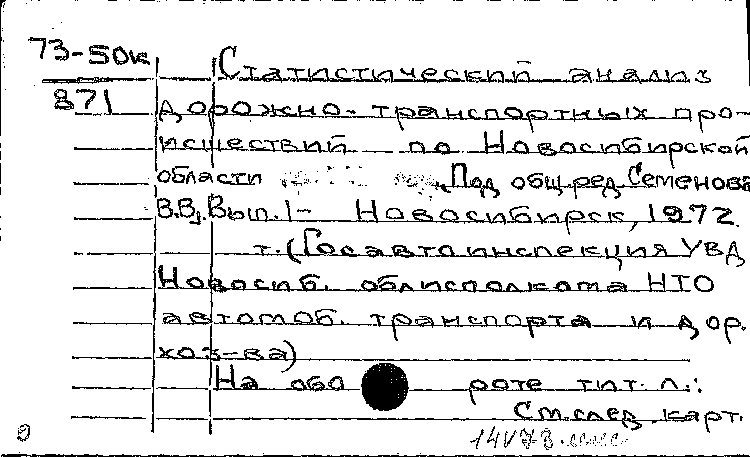 73-50к
871
Статистический анализ
дорожно-транспортных про-
исшествий по Новосибирской
области Под общ.ред.Семенова
В.В, Вып.1- Новосибирск, 1972.
т.(Госавтоинспекция УВД
Новосиб. облисполкома НТО
автомоб. транспорта и дор.
хоз-ва)
На обороте тит. л.:
См.след.карт.
14V73